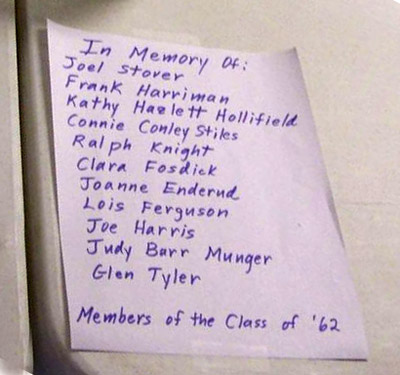 In Memory Of:
Joel Stover
Frank Harriman
Kathy Hazlett Hollifield
Connie Conley Stiks
Ralph Knight
Clara Fosdick
Joanne Enderud
Lois Ferguson
Joe Harris
Judy Barr Munger
Glen Tyler
Members of the Class of '62